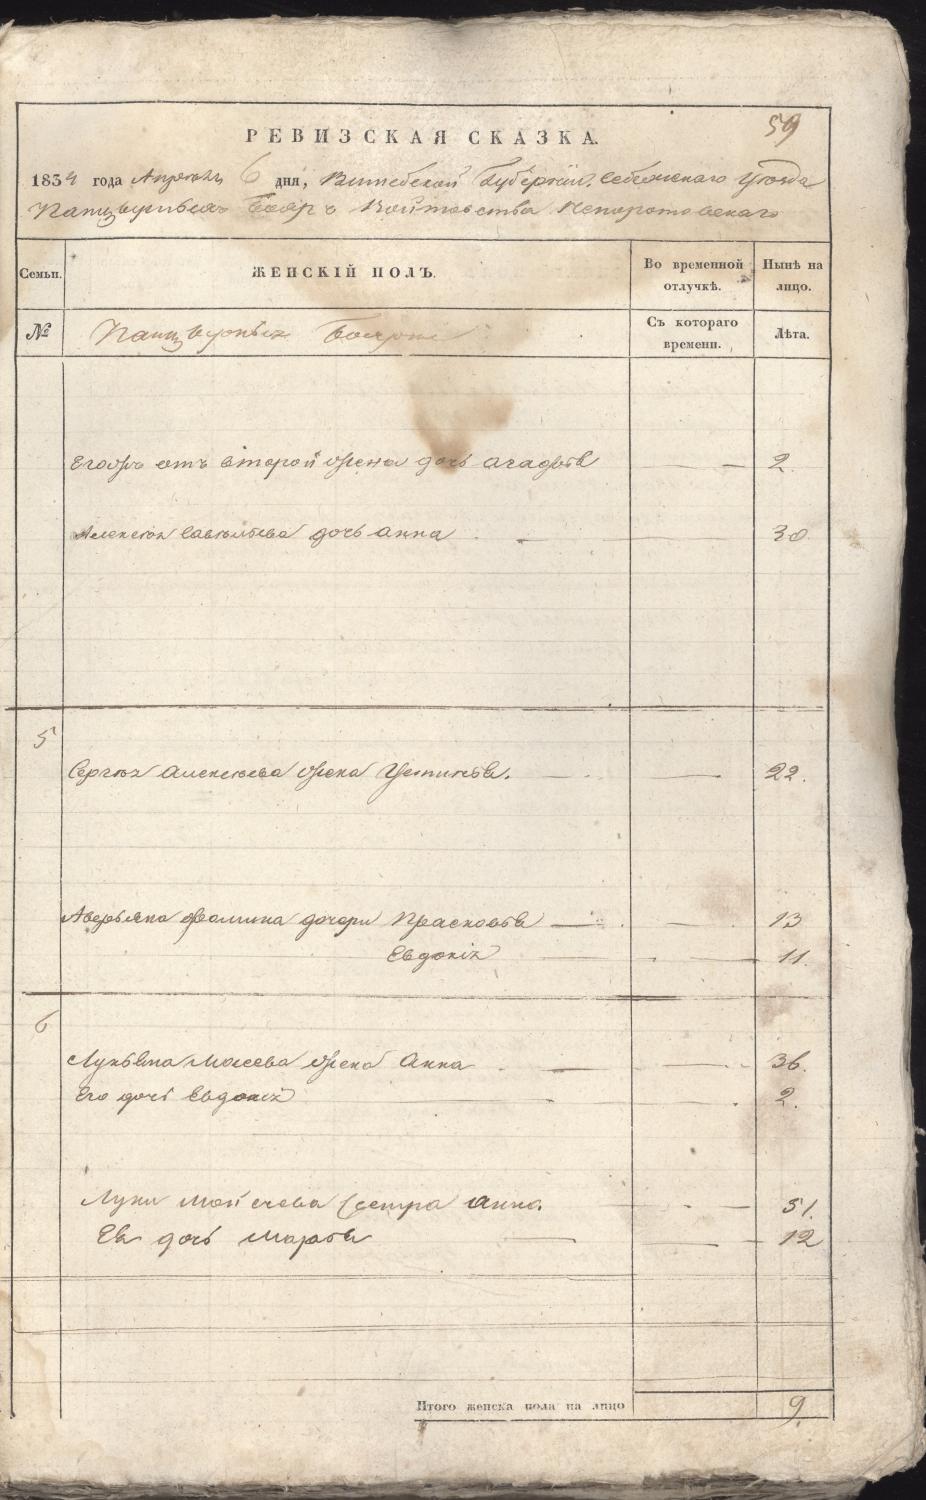 59
РЕВИЗСКАЯ СКАЗКА.
1834 года Апреля 6 дня, Витебской Губернiи, Себежскаго Уезда
Панцырныхъ Бояръ Войтовства Непоротовскаго
Семьи. ЖЕНСКІЙ ПОЛЪ. Во временной отлучкѣ. Нынѣ на лицо.
№ Панцырныхъ Бояръ Съ котораго времени. Лѣта.
Егора отъ второй жена дочь Агафья 2
Алексѣя Савельева дочь Анна 30
5
Сергѣя Алексѣева жена Устинья. 22.
Аверьяна Фомина дочери Прасковья 13
Евдокія 11.
6
Лукьяна Мосеева жена Анна 36.
Его дочь Евдокія 2.
Луки Мойсеева Сестра Анна. 51.
Ея дочь Марфа 12
Итого женска пола на лицо 9.